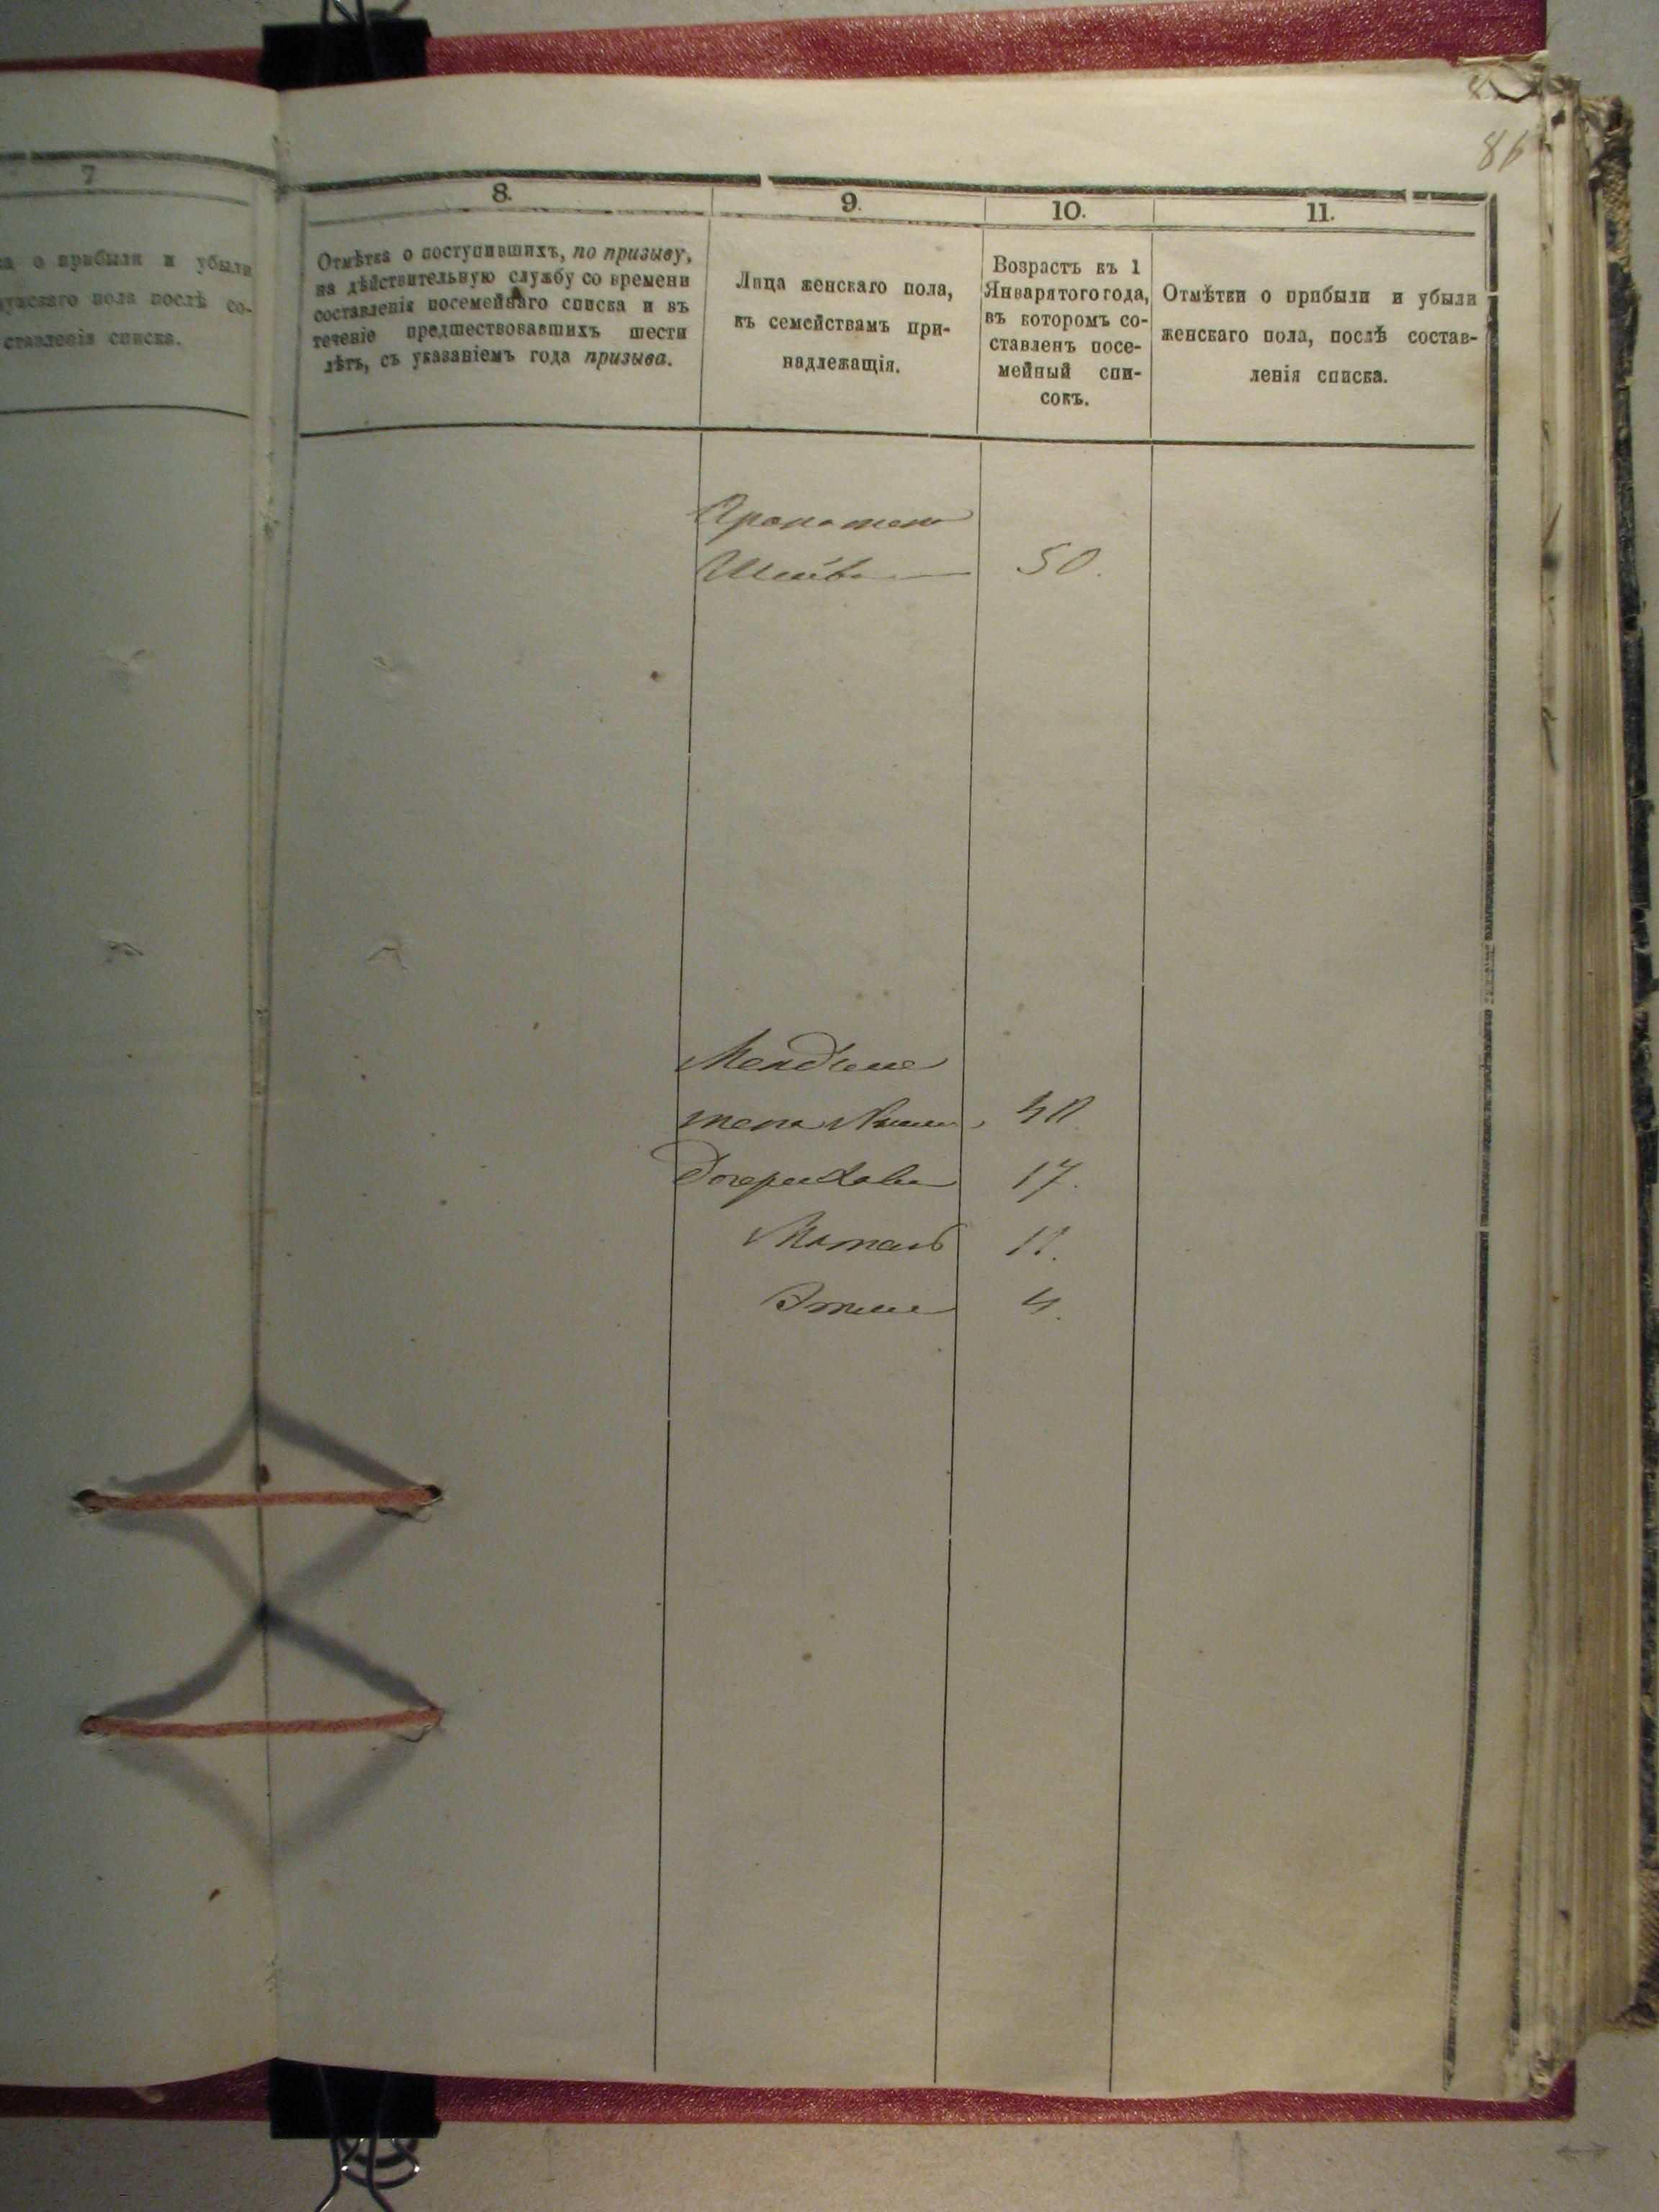 86
7
8.
9.
10.
11.
о прибыли и убыли
мужскаго пола послѣ со-
ставленія списка.
Отмѣтка о поступившихъ, по призыву,
на дѣйствительную службу со времени
составленія посемейнаго списка и въ
теченіе предшествовавшихъ шести
лѣтъ, съ указаніемъ года призыва.
Лица женскаго пола,
къ семействамъ при-
надлежащія.
Возрастъ къ 1
Января того года,
въ которомъ со-
ставленъ посе-
мейный спи-
сокъ.
Отмѣтки о прибыли и убыли
женскаго пола, послѣ состав-
ленія списка.
жена
50.
жена 40
Дочери Хава 17.
4.